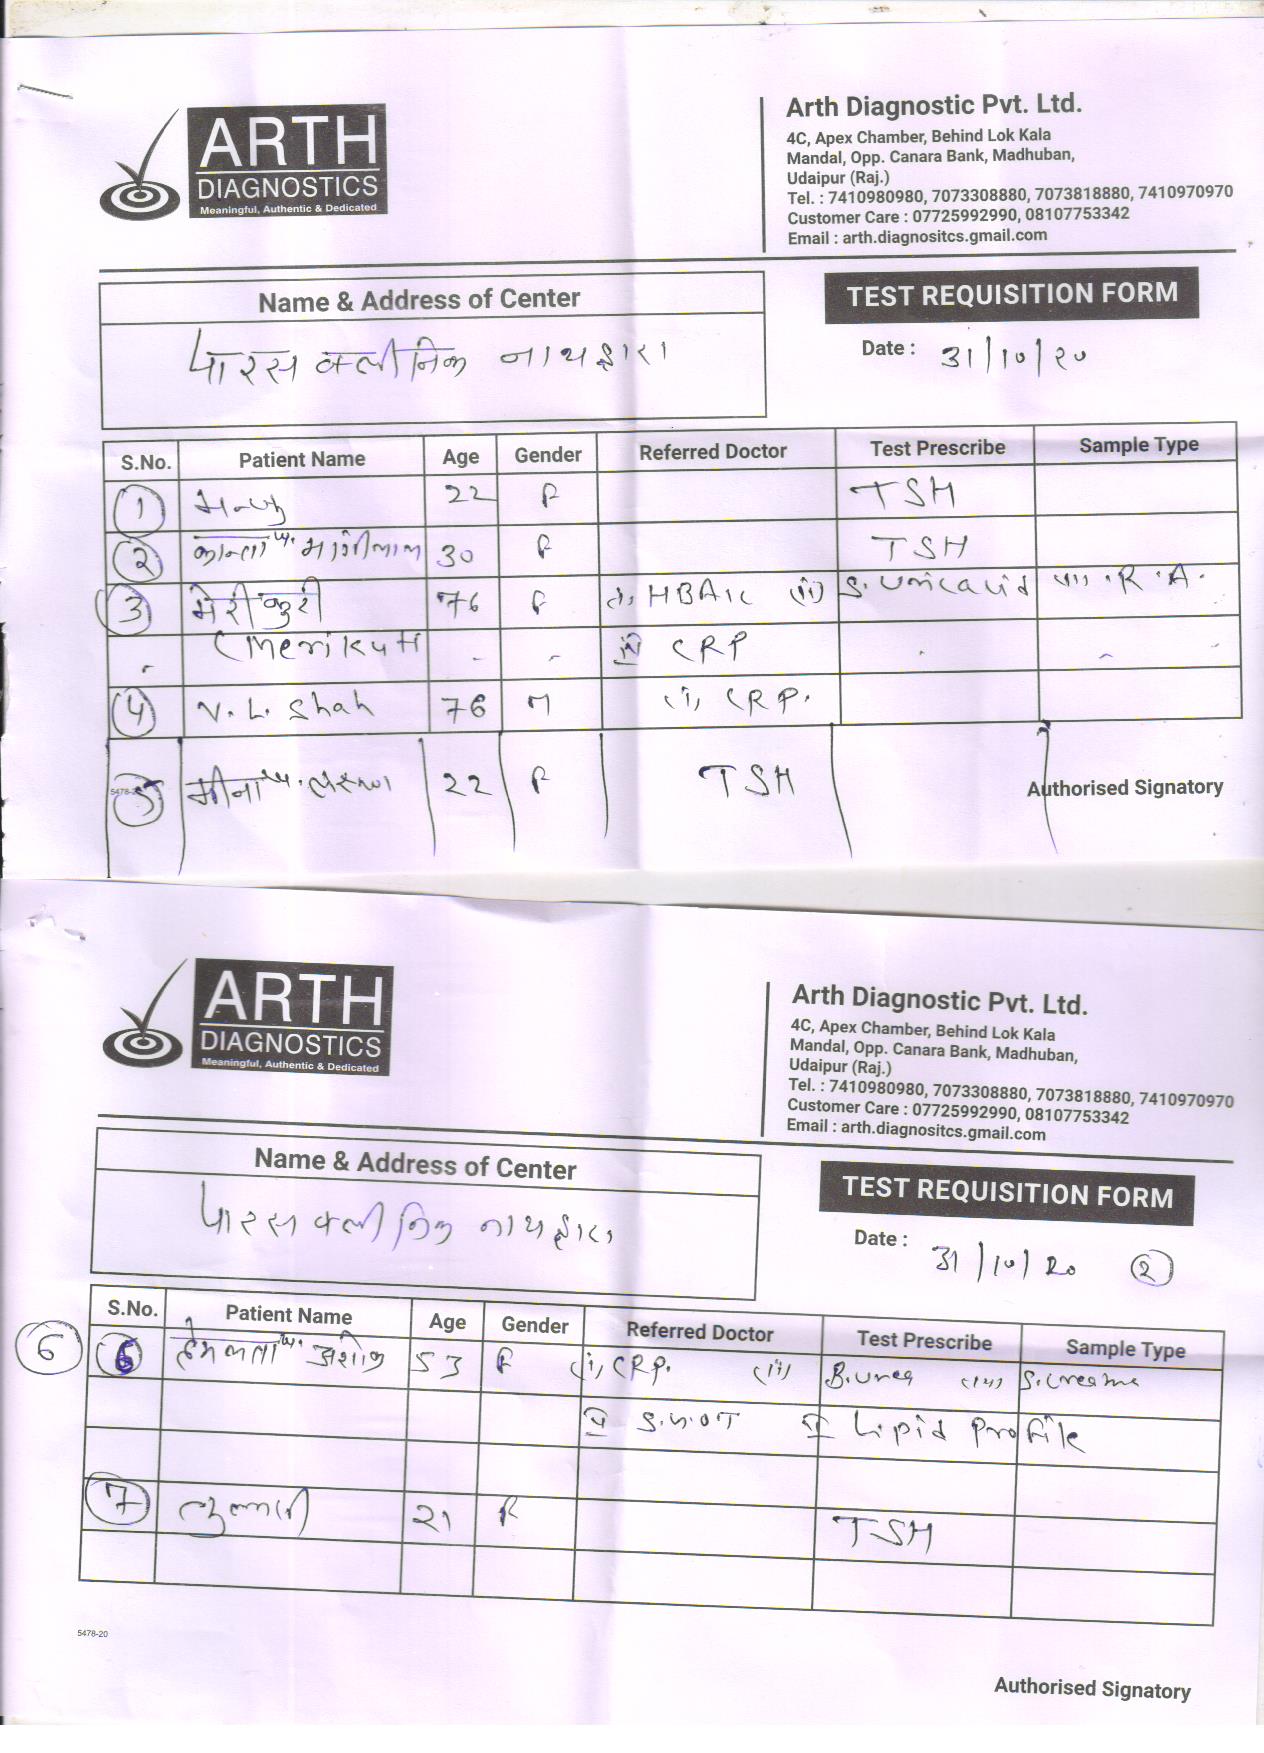 ARTH
DIAGNOSTICS
Meaningful, Authentic & Dedicated
Arth Diagnostic Pvt. Ltd.
4C, Apex Chamber, Behind Lok Kala
Mandal, Opp. Canara Bank, Madhuban,
Udaipur (Raj.)
Tel. : 7410980980, 7073308880, 7073818880, 7410970970
Customer Care : 07725992990, 08107753342
Email : arth.diagnositcs.gmail.com
Name & Address of Center
TEST REQUISITION FORM
पारस क्लीनिक नाथद्वारा
Date : 31/10/20
S.No. Patient Name Age Gender Referred Doctor Test Prescribe Sample Type
1 22 F TSH
2 कान्ता W. मांगीलाल 30 F TSH
3 मेरीकुटी 76 F (i) HBA1c (ii) S. Uricacid (iii) R.A.
(Merikutti - - iv CRP
4 V. L. Shah 76 M (i) CRP.
5 मीना W. 22 F TSH
5478-20
Authorised Signatory
ARTH
DIAGNOSTICS
Meaningful, Authentic & Dedicated
Arth Diagnostic Pvt. Ltd.
4C, Apex Chamber, Behind Lok Kala
Mandal, Opp. Canara Bank, Madhuban,
Udaipur (Raj.)
Tel. : 7410980980, 7073308880, 7073818880, 7410970970
Customer Care : 07725992990, 08107753342
Email : arth.diagnositcs.gmail.com
Name & Address of Center
TEST REQUISITION FORM
पारस क्लीनिक नाथद्वारा
Date : 31/10/20 2
S.No. Patient Name Age Gender Referred Doctor Test Prescribe Sample Type
6 6 हेमलता W. अशोक 53 F (i) CRP. (ii) B.urea (iii)
iv S.G.O.T V Lipid Profile
7 21 F TSH
5478-20
Authorised Signatory